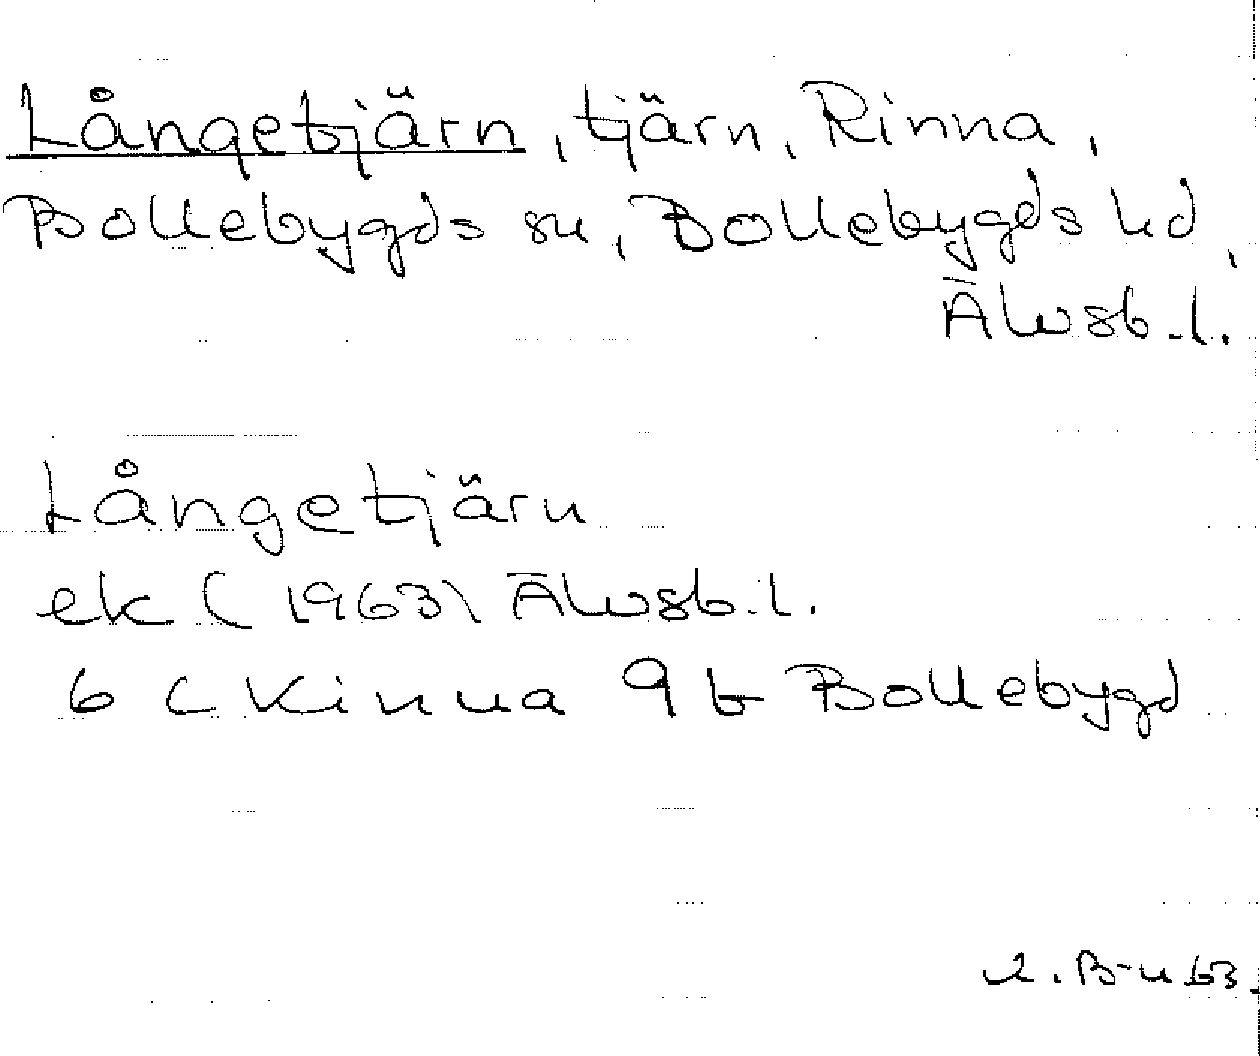 Långetjärn, tjärn, Rinna,
Bollebygds sn, Bollebygds hd,
Älvsb.l.
Långetjärn
ek (1963) Älvsb.l.
6 C Kinna 9 b Bollebygd
B-n 63.